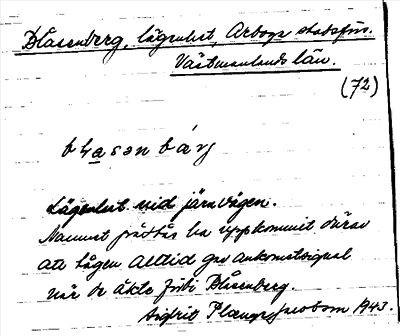 Blåsenberg, lägenhet, Arboga stadsförs.
Västmanlands län.
(72)
Lägenhet vid järnvägen.
Namnet påstås ha uppkommit därav
att tågen alltid gav ankomstsignal
när de åkte förbi Blåsenberg.
Sigbrit Plænge Jacobson 1943.